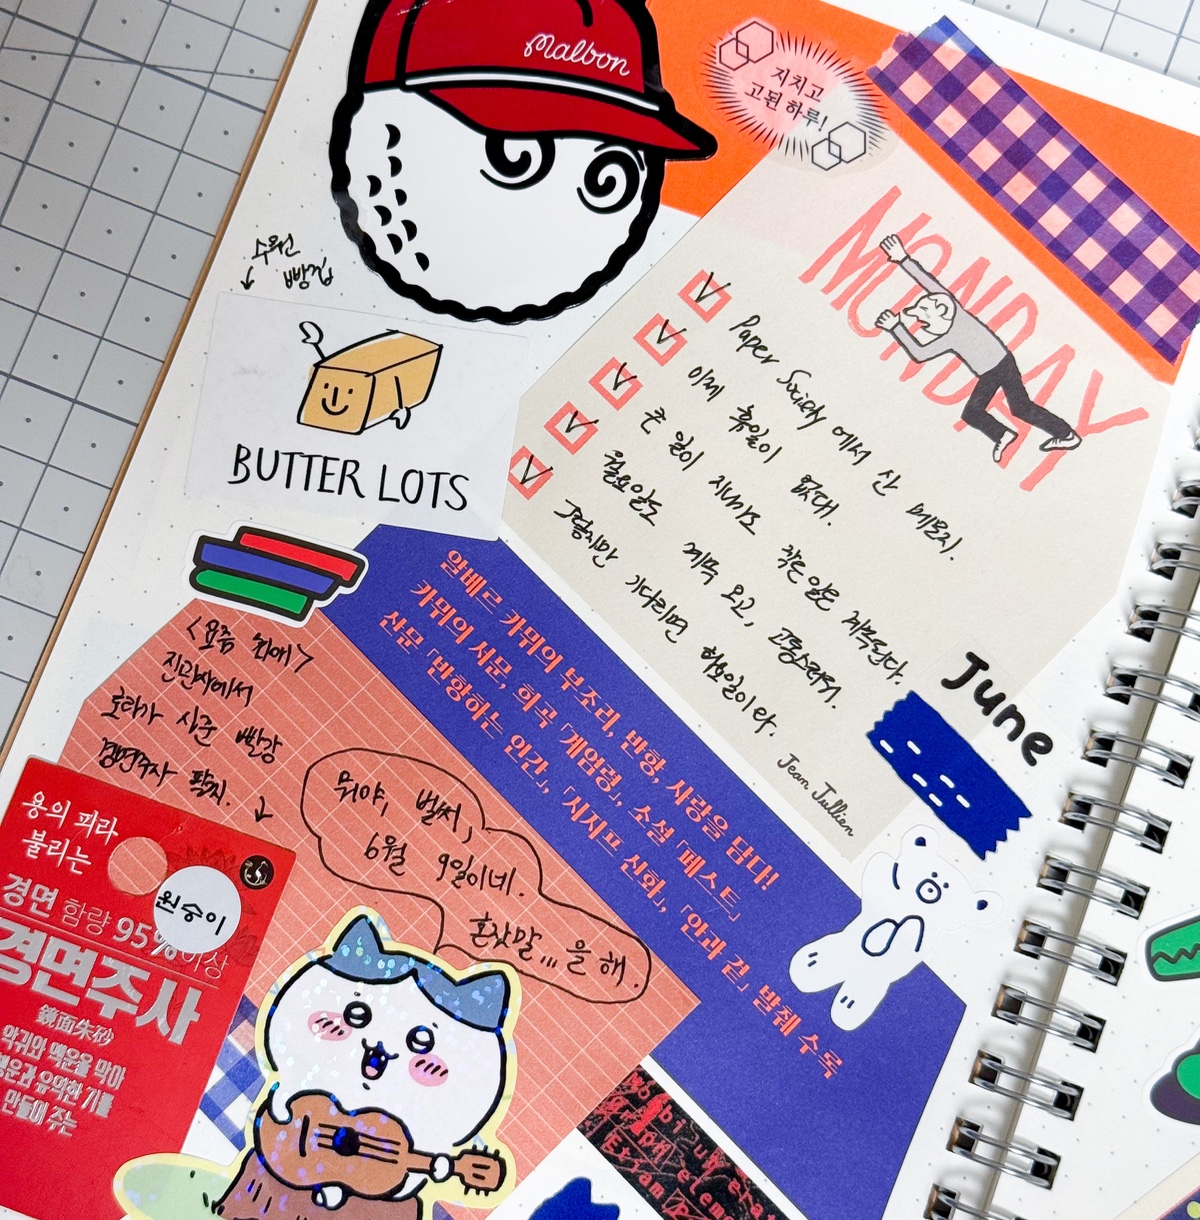 Malbon
지치고
고된 하루!
MONDAY
수원
빵집
BUTTER LOTS
Paper Society 에서 산 메모지.
이제 휴일이 없다.
큰 일이 지나가도 작은 일은 계속된다.
월요일도 계속 오고, 고통스러워.
그렇지만 기다리면 화요일이다.
Jean Jullien
June
알베르 카뮈의 부조리, 반항, 사랑을 담다!
카뮈의 서문, 희곡 「계엄령」, 소설 「페스트」
산문 「반항하는 인간」, 「시지프 신화」, 「안과 겉」 발췌 수록
<요즘 최애>
진관사에서
로타가 사준 빨강
경면주사 팔찌.
뭐야, 벌써,
6월 9일이네.
혼잣말... 을 해.
용의 피라
불리는
경면 함량 95%이상
원숭이
경면주사
鏡面朱砂
악귀와 액운을 막아
행운과 유익한 기를
만들어 주는